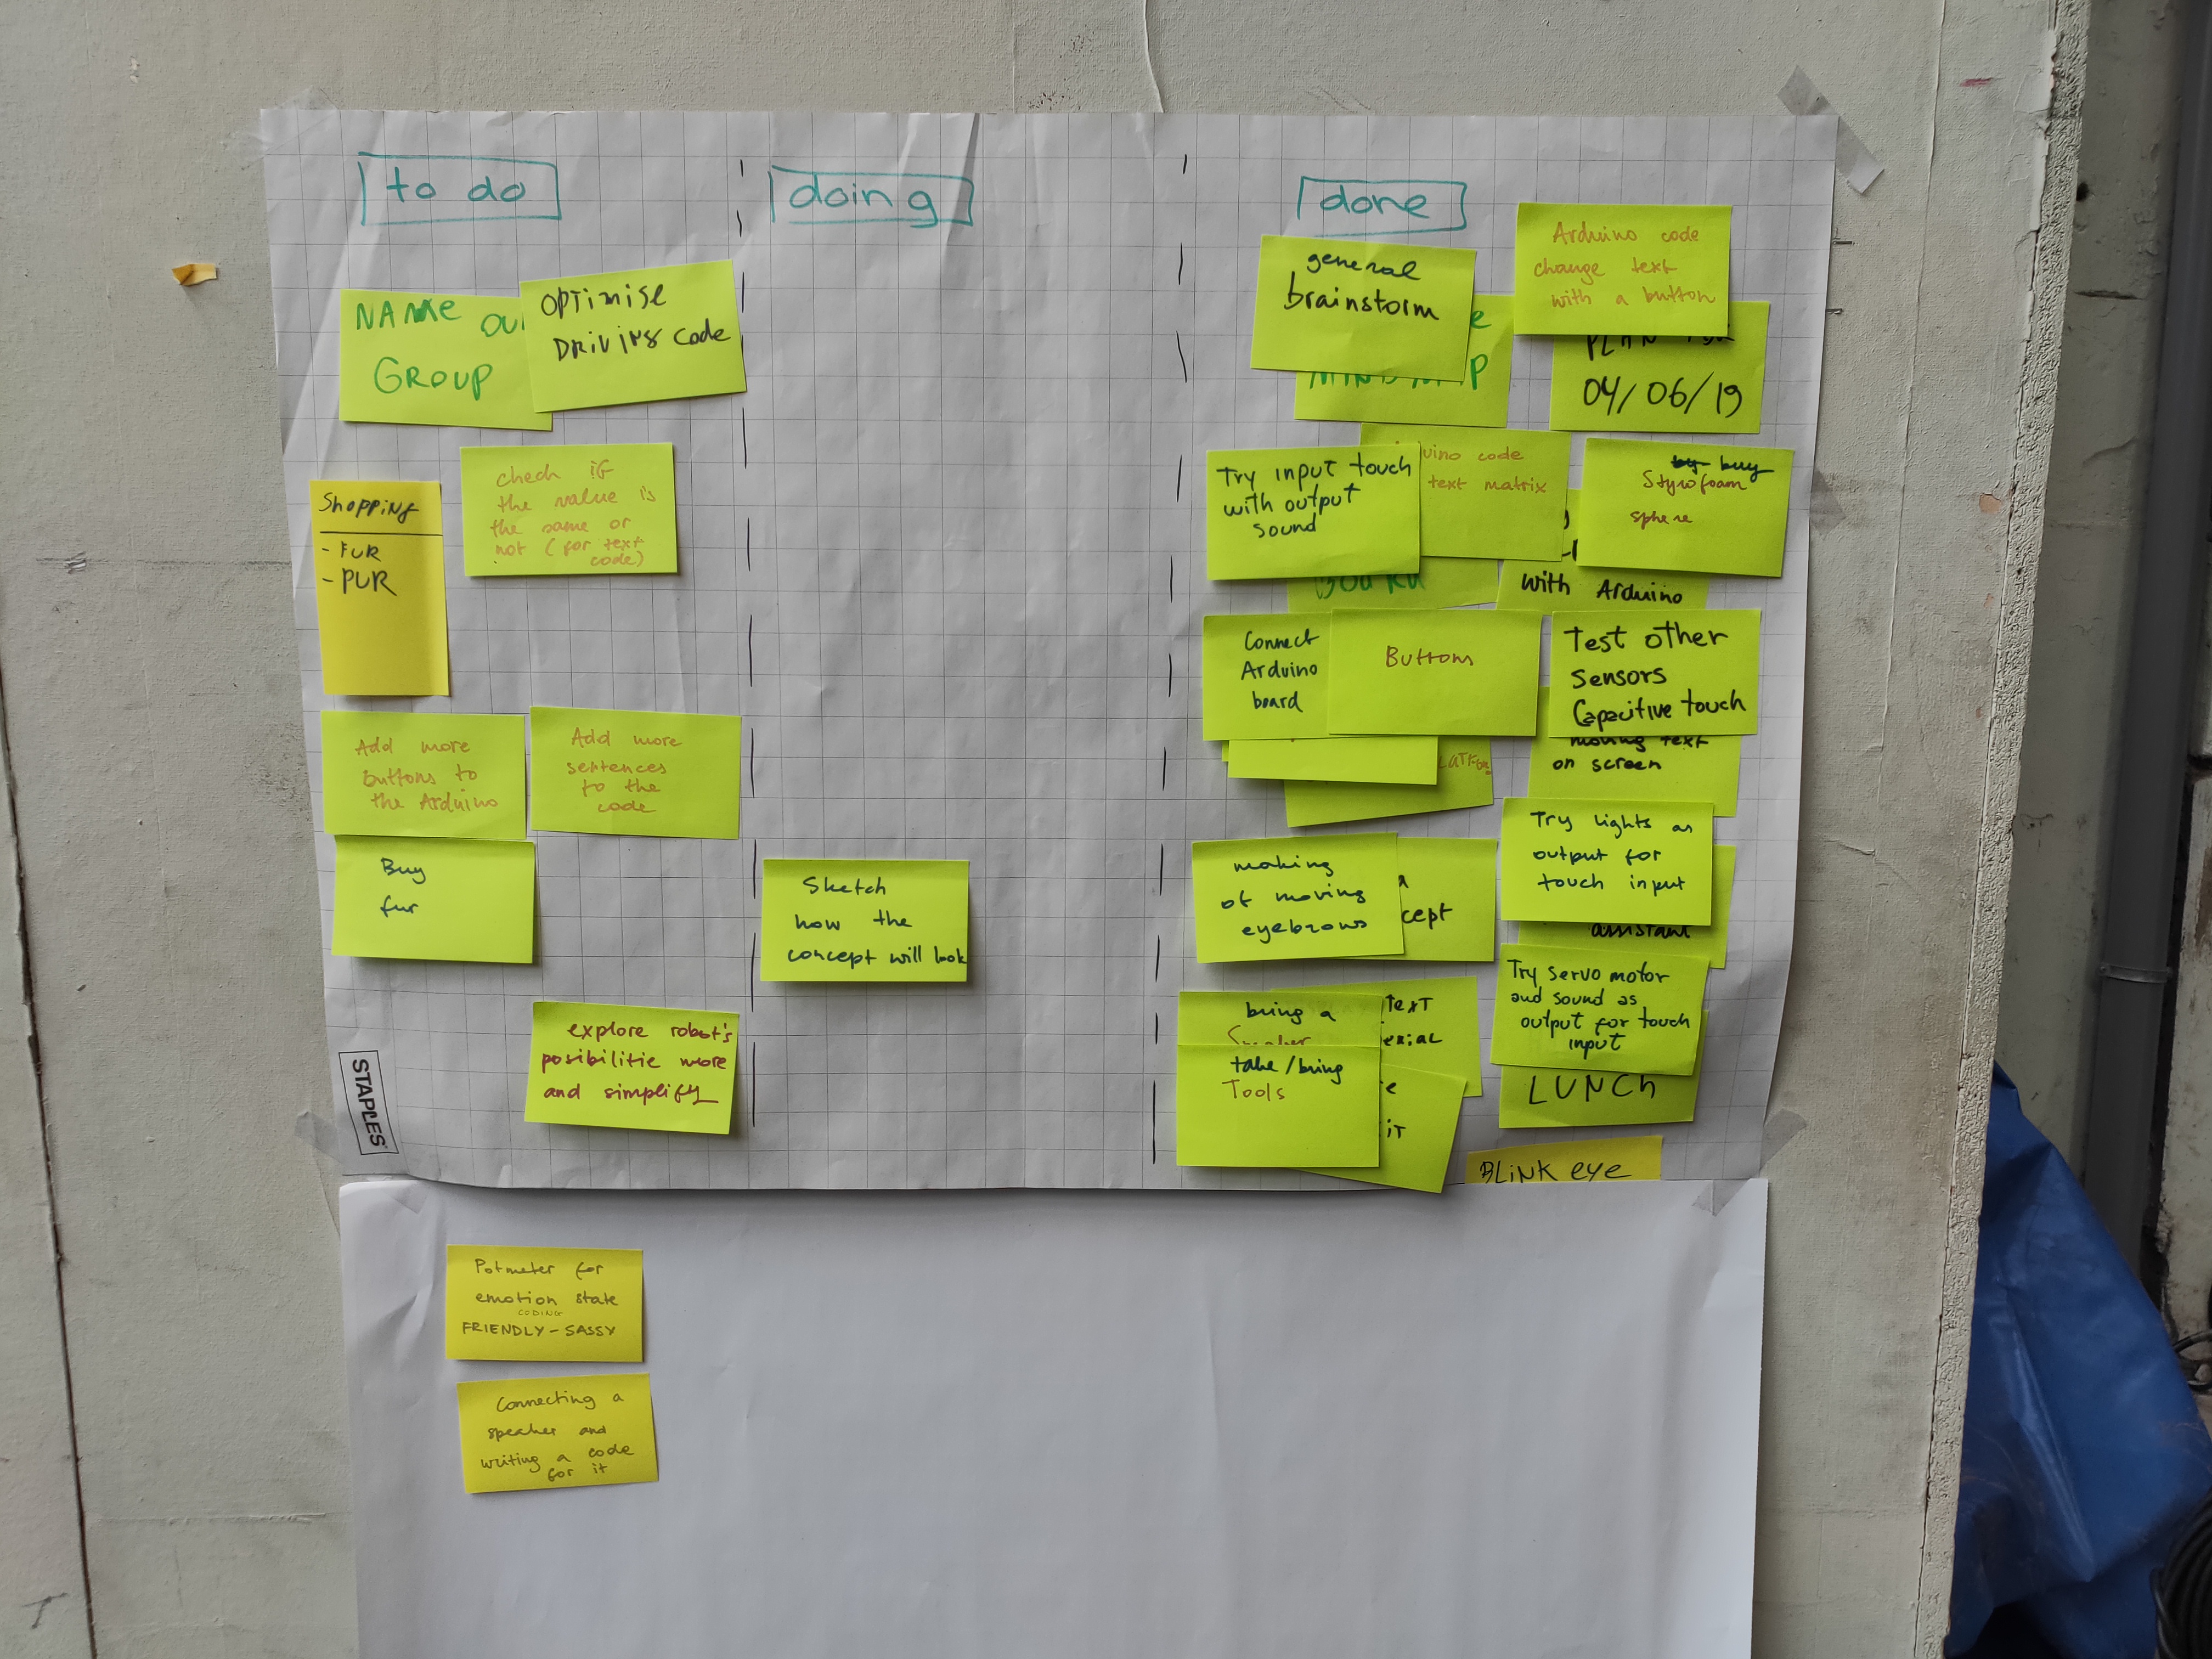 to do
NAME OU
GROUP
OPTIMISE
DRIVING code
Shopping
- FUR
- PUR
check if
the value is
the same or
not (for text
code)
Add more
buttons to
the Arduino
Add more
sentences
to the
code
Buy
fur
explore robot's
posibilitie more
and simplify
STAPLES
doing
Sketch
how the
concept will look
done
general
brainstorm
Arduino code
change text
with a button
04/06/19
Try input touch
with output
sound
uino code
text matrix
buy
Styrofoam
sphere
with Arduino
Connect
Arduino
board
Buttons
Test other
sensors
Capacitive touch
moving text
on screen
making
of moving
eyebrows
cept
Try lights as
output for
touch input
assistant
Try servo motor
and sound as
output for touch
input
bring a
take/bring
Tools
TEXT
LUNCH
BLINK eye
Potmeter for
emotion state
CODING
FRIENDLY - SASSY
Connecting a
speaker and
writing a code
for it